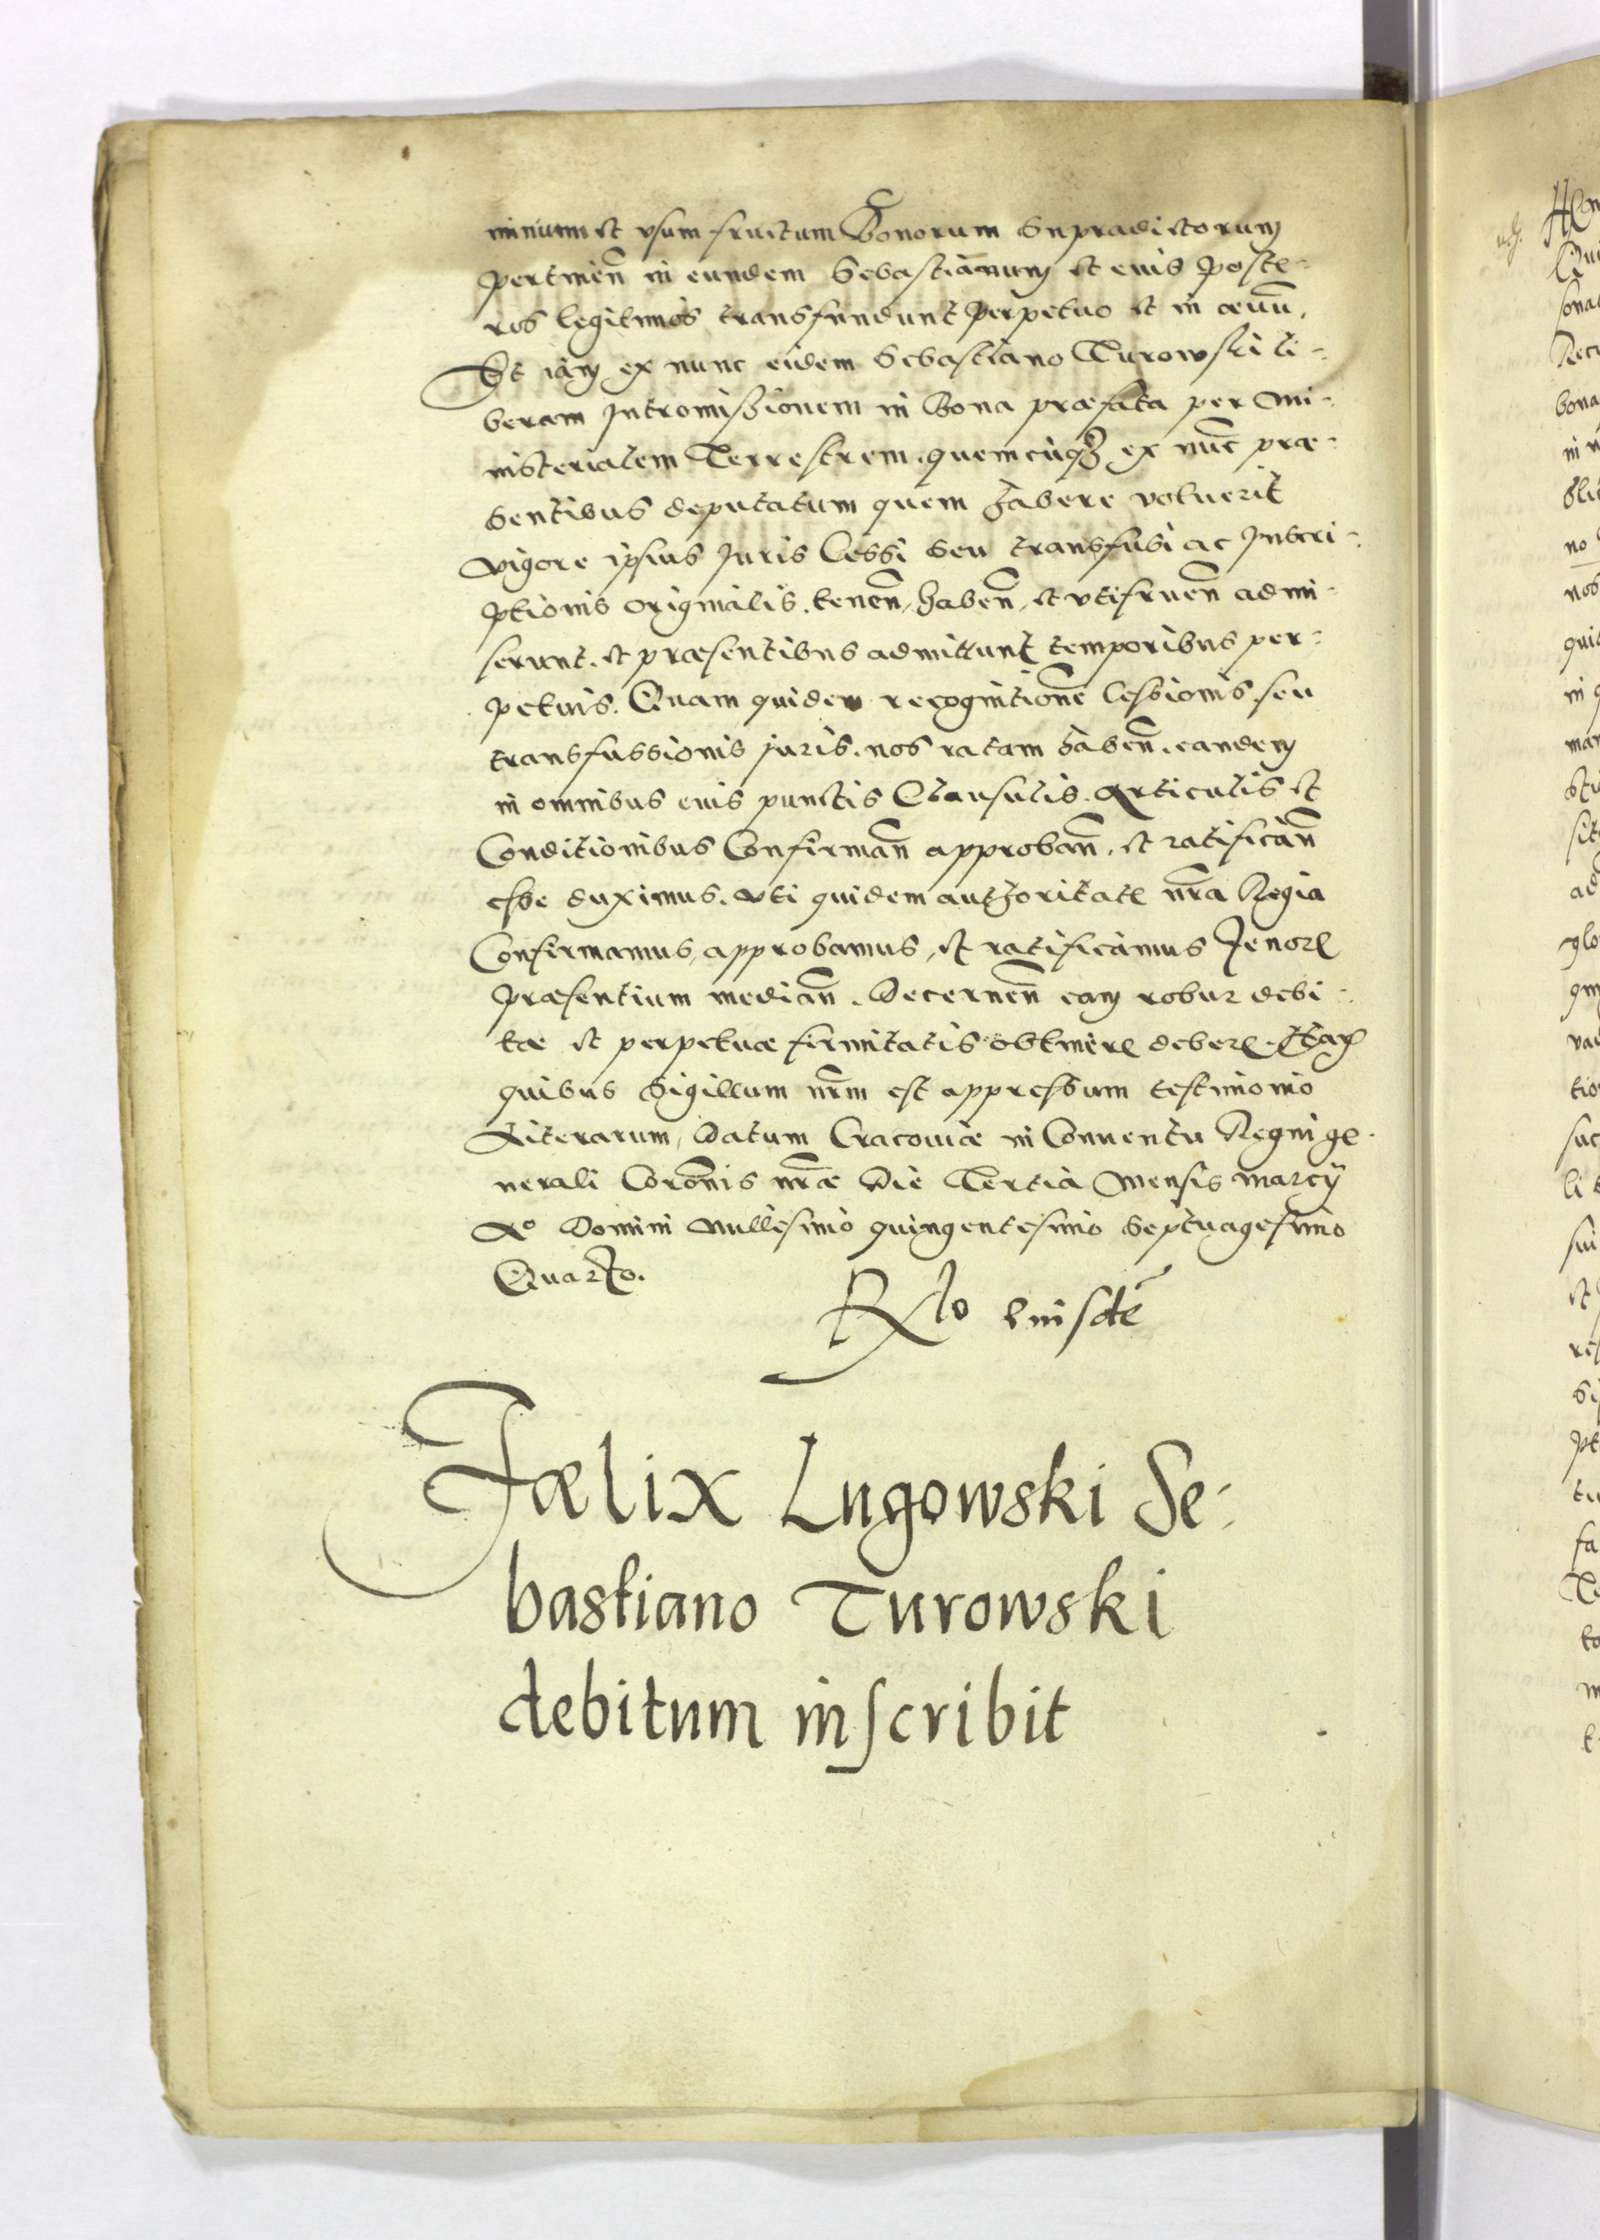 minium et vsum fructum Bonorum supradictorum
pertinen̄ in eundem Sebastianum et eius poste-
ros legitimos transfundunt perpetuo et in aeuū.
Et iam ex nunc eidem Sebastiano Turowski li-
beram Intromissionem in Bona praefata per Mi-
nisterialem Terrestrem quemcūq3 ex nūc prae-
sentibus deputatum quem habere voluerit
vigore ipsius Juris Cessi seu transfusi ac Inscri-
ptionis originalis. tenen̄, haben̄, et vtifruen̄ admi-
serunt. et praesentibus admittunt temporibus per-
petuis. Quam quidem recognitionē Cessionis seu
transfussionis juris. nos ratam haben̄. eandem
in omnibus euis punctis Clausulis. Articulis et
Conditionibus Confirman̄ approban̄. et ratifican̄
esse duximus. vti quidem authoritate nr̄a Regia
Confirmamus, approbamus, et ratificamus Tenore
praesentium median̄. Decernen̄ eam robur debi-
tae et perpetuae firmitatis obtinere debere.
quibus Sigillum nr̄m est appressum testimonio
Literarum, Datum Cracouiae in Conuentu Regni ge-
nerali Coron̄is nr̄ae Die Tertia Mensis Marcÿ
Ao Domini Millesimo quingentesimo Septuagesimo
Quarto.
Faelix Lugowski Se-
bastiano Turowski
debitum inscribit